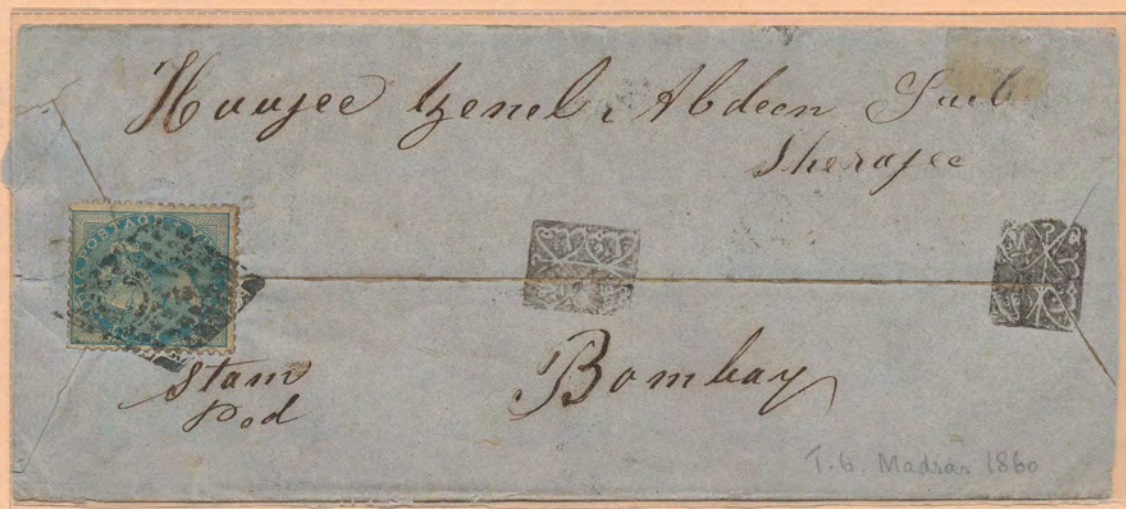 Haujee Zenel Abdeen Saib
Sherajee
POSTAGE
Stam
Pod
Bombay
T.6. Madras 1860